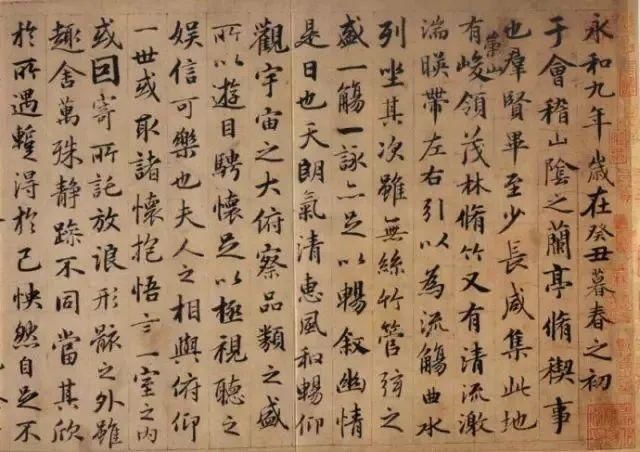 永和九年歲在癸丑暮春之初
于會稽山陰之蘭亭脩禊事
也羣賢畢至少長咸集此地
有崇山峻領茂林脩竹又有清流激
湍暎帶左右引以為流觴曲水
列坐其次雖無絲竹管弦之
盛一觴一詠亦足以暢敘幽情
是日也天朗氣清惠風和暢仰
觀宇宙之大俯察品類之盛
所以遊目騁懷足以極視聽之
娛信可樂也夫人之相與俯仰
一世或取諸懷抱悟言一室之內
或因寄所託放浪形骸之外雖
趣舍萬殊静躁不同當其欣
於所遇蹔得於己怏然自足不